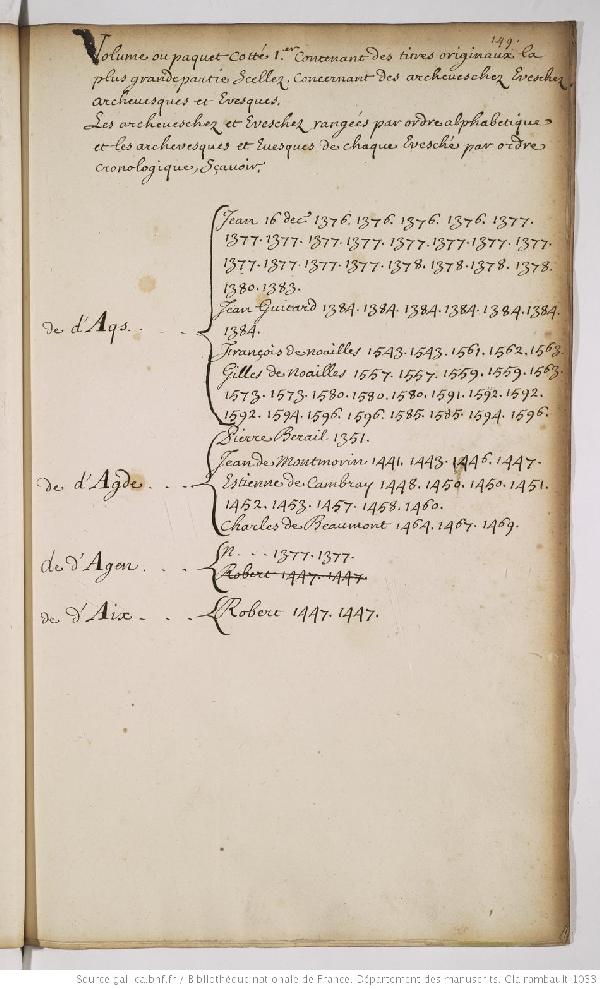 149.
Volume ou paquet Cotté 1.er Contenant des titres originaux, la
plus grande partie Scellez, Concernant des archeveschez Eveschez
archevesques et Evesques.
Les archeveschez et Eveschez rangées par ordre alphabetique
et les archevesques et Evesques de chaque Evesché par ordre
cronologique, Sçavoir,
Jean 16 dec.e 1376. 1376. 1376. 1376. 1377.
1377. 1377. 1377. 1377. 1377. 1377. 1377. 1377.
1377. 1377. 1377. 1377. 1378. 1378. 1378. 1378.
1380. 1383.
Jean Guitard 1384. 1384. 1384. 1384. 1384. 1384.
de d'Aqs. . . . . 1384.
François de noailles 1543. 1543. 1561. 1562. 1563.
Gilles de noailles 1557. 1557. 1559. 1559. 1563.
1573. 1573. 1580. 1580. 1580. 1591. 1592. 1592.
1592. 1594. 1596. 1596. 1585. 1585. 1594. 1596.
Pierre Berail 1351.
Jean de Montmorin 1441. 1443. 1446. 1447.
de d'Agde . . . . Estienne de Cambray 1448. 1450. 1450. 1451.
1452. 1453. 1457. 1458. 1460.
Charles de Beaumont 1464. 1467. 1469.
N. . . . 1377. 1377.
de d'Agen . . . .
Robert 1447. 1447
de d'Aix . . . . Robert 1447. 1447.
Source gallica.bnf.fr / Bibliothèque nationale de France. Département des manuscrits. Clairambault 1033